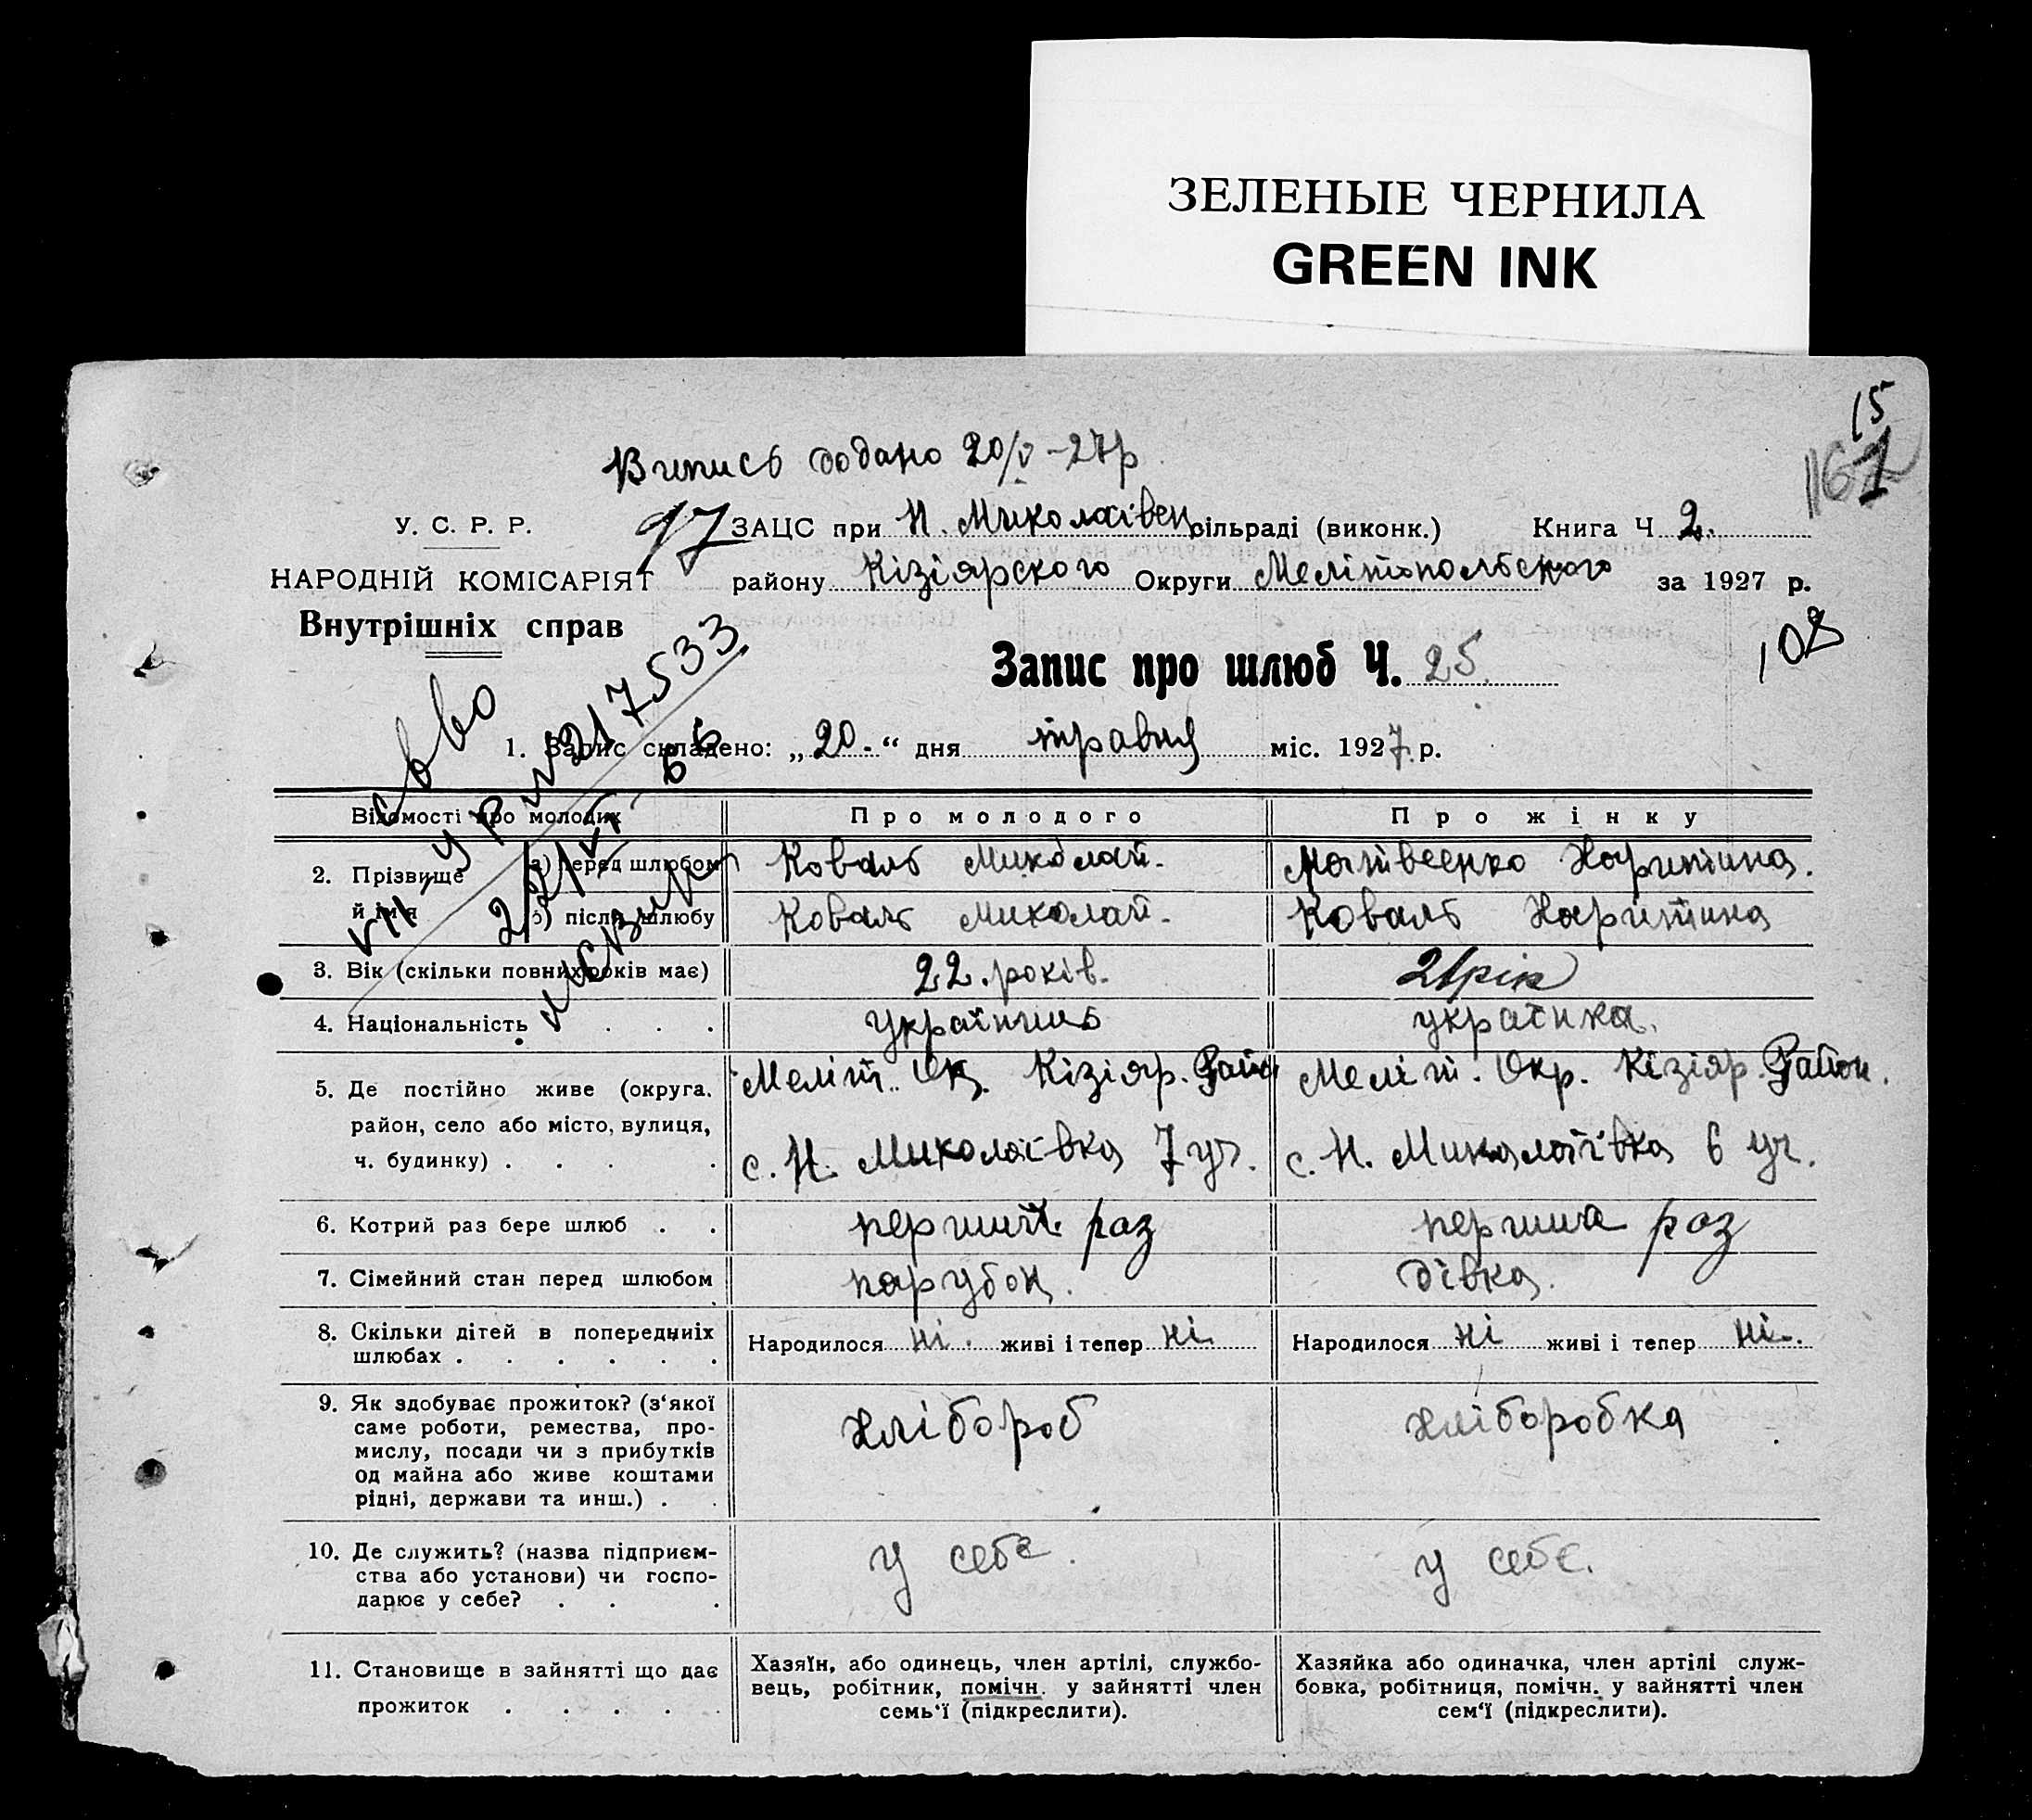 ЗЕЛЕНЫЕ ЧЕРНИЛА
GREEN INK
15
Випись додано 20/V-27р.
У. С. Р. Р.
НАРОДНІЙ КОМІСАРІЯТ
Внутрішніх справ
97
ЗАЦС при Н. Миколаівск сільраді (виконк.) Книга Ч 2.
району Кізіярского Округи Мелітопольского за 1927 р.
108
Запис про шлюб Ч. 25.
1. Запис складено: „20.“ дня травня міс. 1927 р.
VII-УР № 217533
Відомості про молодих Про молодого Про жінку
2. Прізвище й імя а) перед шлюбом Коваль Миколай. Матвеенко Харитина.
б) після шлюбу Коваль Миколай. Коваль Харитина
3. Вік (скільки повних років має) 22. років. 21 рік
4. Національність . . . українець українка.
5. Де постійно живе (округа. район, село або місто, вулиця, ч. будинку) . . . .
Меліт. Ок. Кізіяр. Район Меліт. Окр. Кізіяр. Район.
с. Н. Миколаівка 7 уч. с. Н. Миколаівка 6 уч.
6. Котрий раз бере шлюб . . перший раз перша раз
7. Сімейний стан перед шлюбом парубок. дівка.
8. Скільки дітей в попередниіх шлюбах . . . . . .
Народилося ні. живі і тепер ні. Народилося ні живі і тепер ні.
9. Як здобуває прожиток? (з‘якої
саме роботи, ремества, про-
мислу, посади чи з прибутків
од майна або живе коштами
рідні, держави та инш.) . .
хлібороб хліборобка
10. Де служить? (назва підприєм-
ства або установи) чи госпо-
дарює у себе? . . .
у себе. у себе.
11. Становище в зайнятті що дає
прожиток . . . . .
Хазяїн, або одинець, член артілі, службо-
вець, робітник, помічн. у зайнятті член
семь‘ї (підкреслити).
Хазяйка або одиначка, член артілі служ-
бовка, робітниця, помічн. у зайнятті член
сем‘ї (підкреслити).